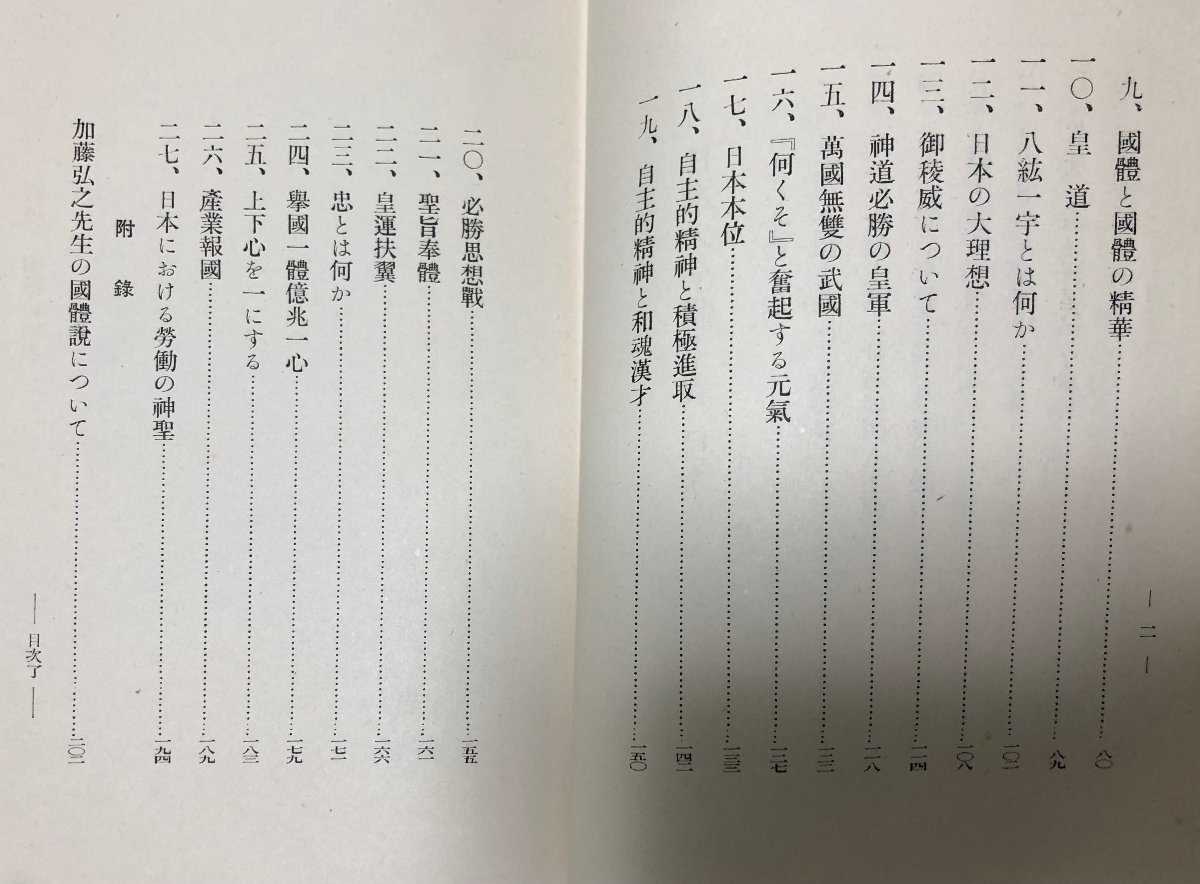 九、國體と國體の精華……八〇
一〇、皇道……八九
一一、八紘一宇とは何か……一〇二
一二、日本の大理想……一〇八
一三、御稜威について……一一四
一四、神道必勝の皇軍……一一八
一五、萬國無雙の武國……一二二
一六、『何くそ』と奮起する元氣……一二七
一七、日本本位……一三三
一八、自主的精神と積極進取……一四二
一九、自主的精神と和魂漢才……一五〇
— 二 —
二〇、必勝思想戰……一五五
二一、聖旨奉體……一六一
二二、皇運扶翼……一六六
二三、忠とは何か……一七一
二四、擧國一體億兆一心……一七九
二五、上下心を一にする……一八三
二六、產業報國……一八九
二七、日本における勞働の神聖……一九四
附錄
加藤弘之先生の國體說について……二〇二
—— 目次了 ——